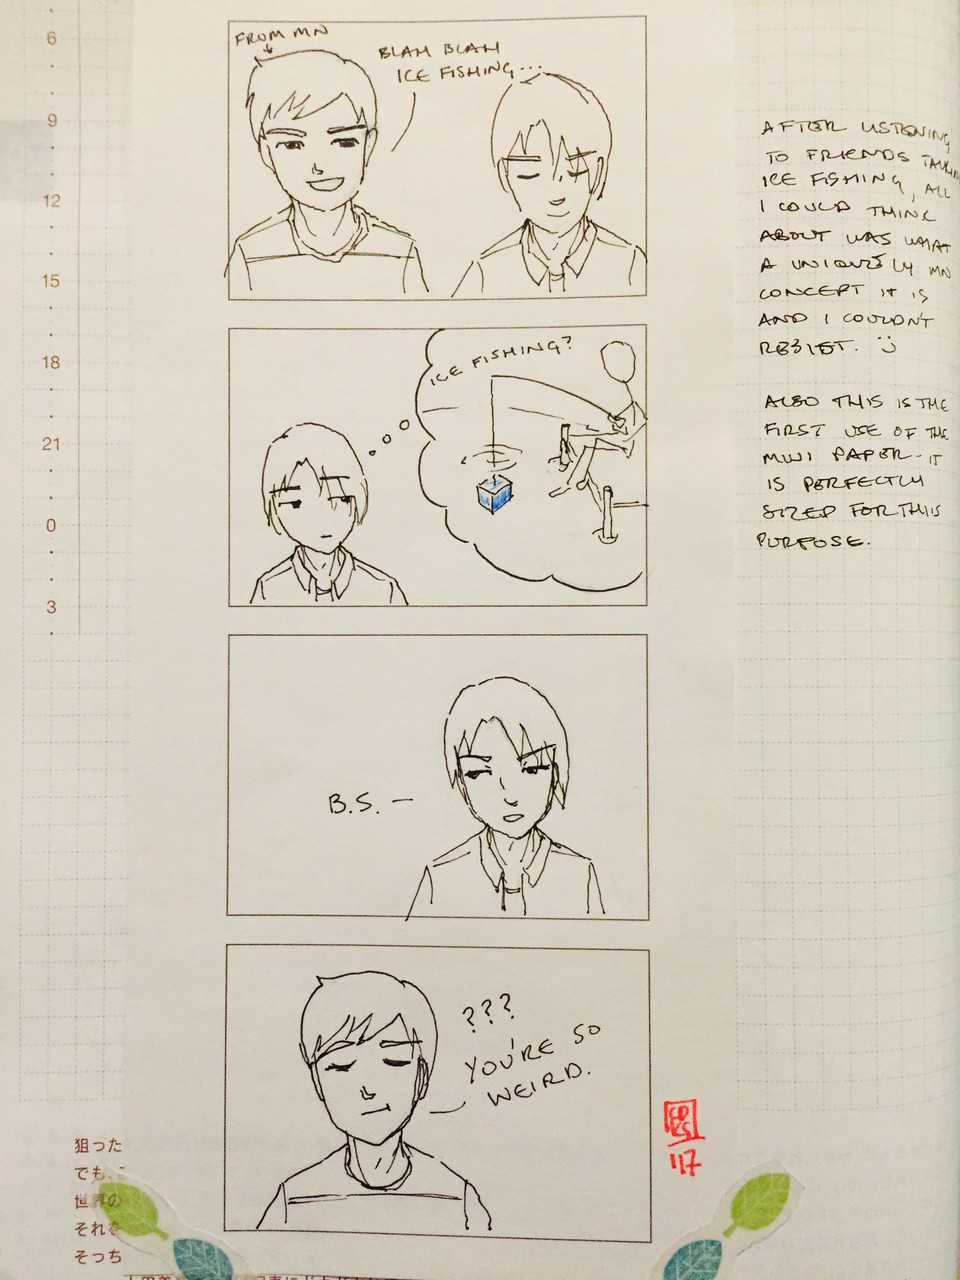 6
9
12
15
18
21
0
3
FROM MN
BLAH BLAH
ICE FISHING...
ICE FISHING?
B.S.
???
YOU'RE SO
WEIRD.
AFTER LISTENING
TO FRIENDS
ICE FISHING, ALL
I COULD THINK
ABOUT WAS WHAT
A UNIQUELY MN
CONCEPT IT IS
AND I COULDN'T
RESIST. :)
ALSO THIS IS THE
FIRST USE OF THE
MINI PAPER - IT
IS PERFECTLY
SIZED FOR THIS
PURPOSE.
'17
狙った
でも、
世界の
それを
そっち